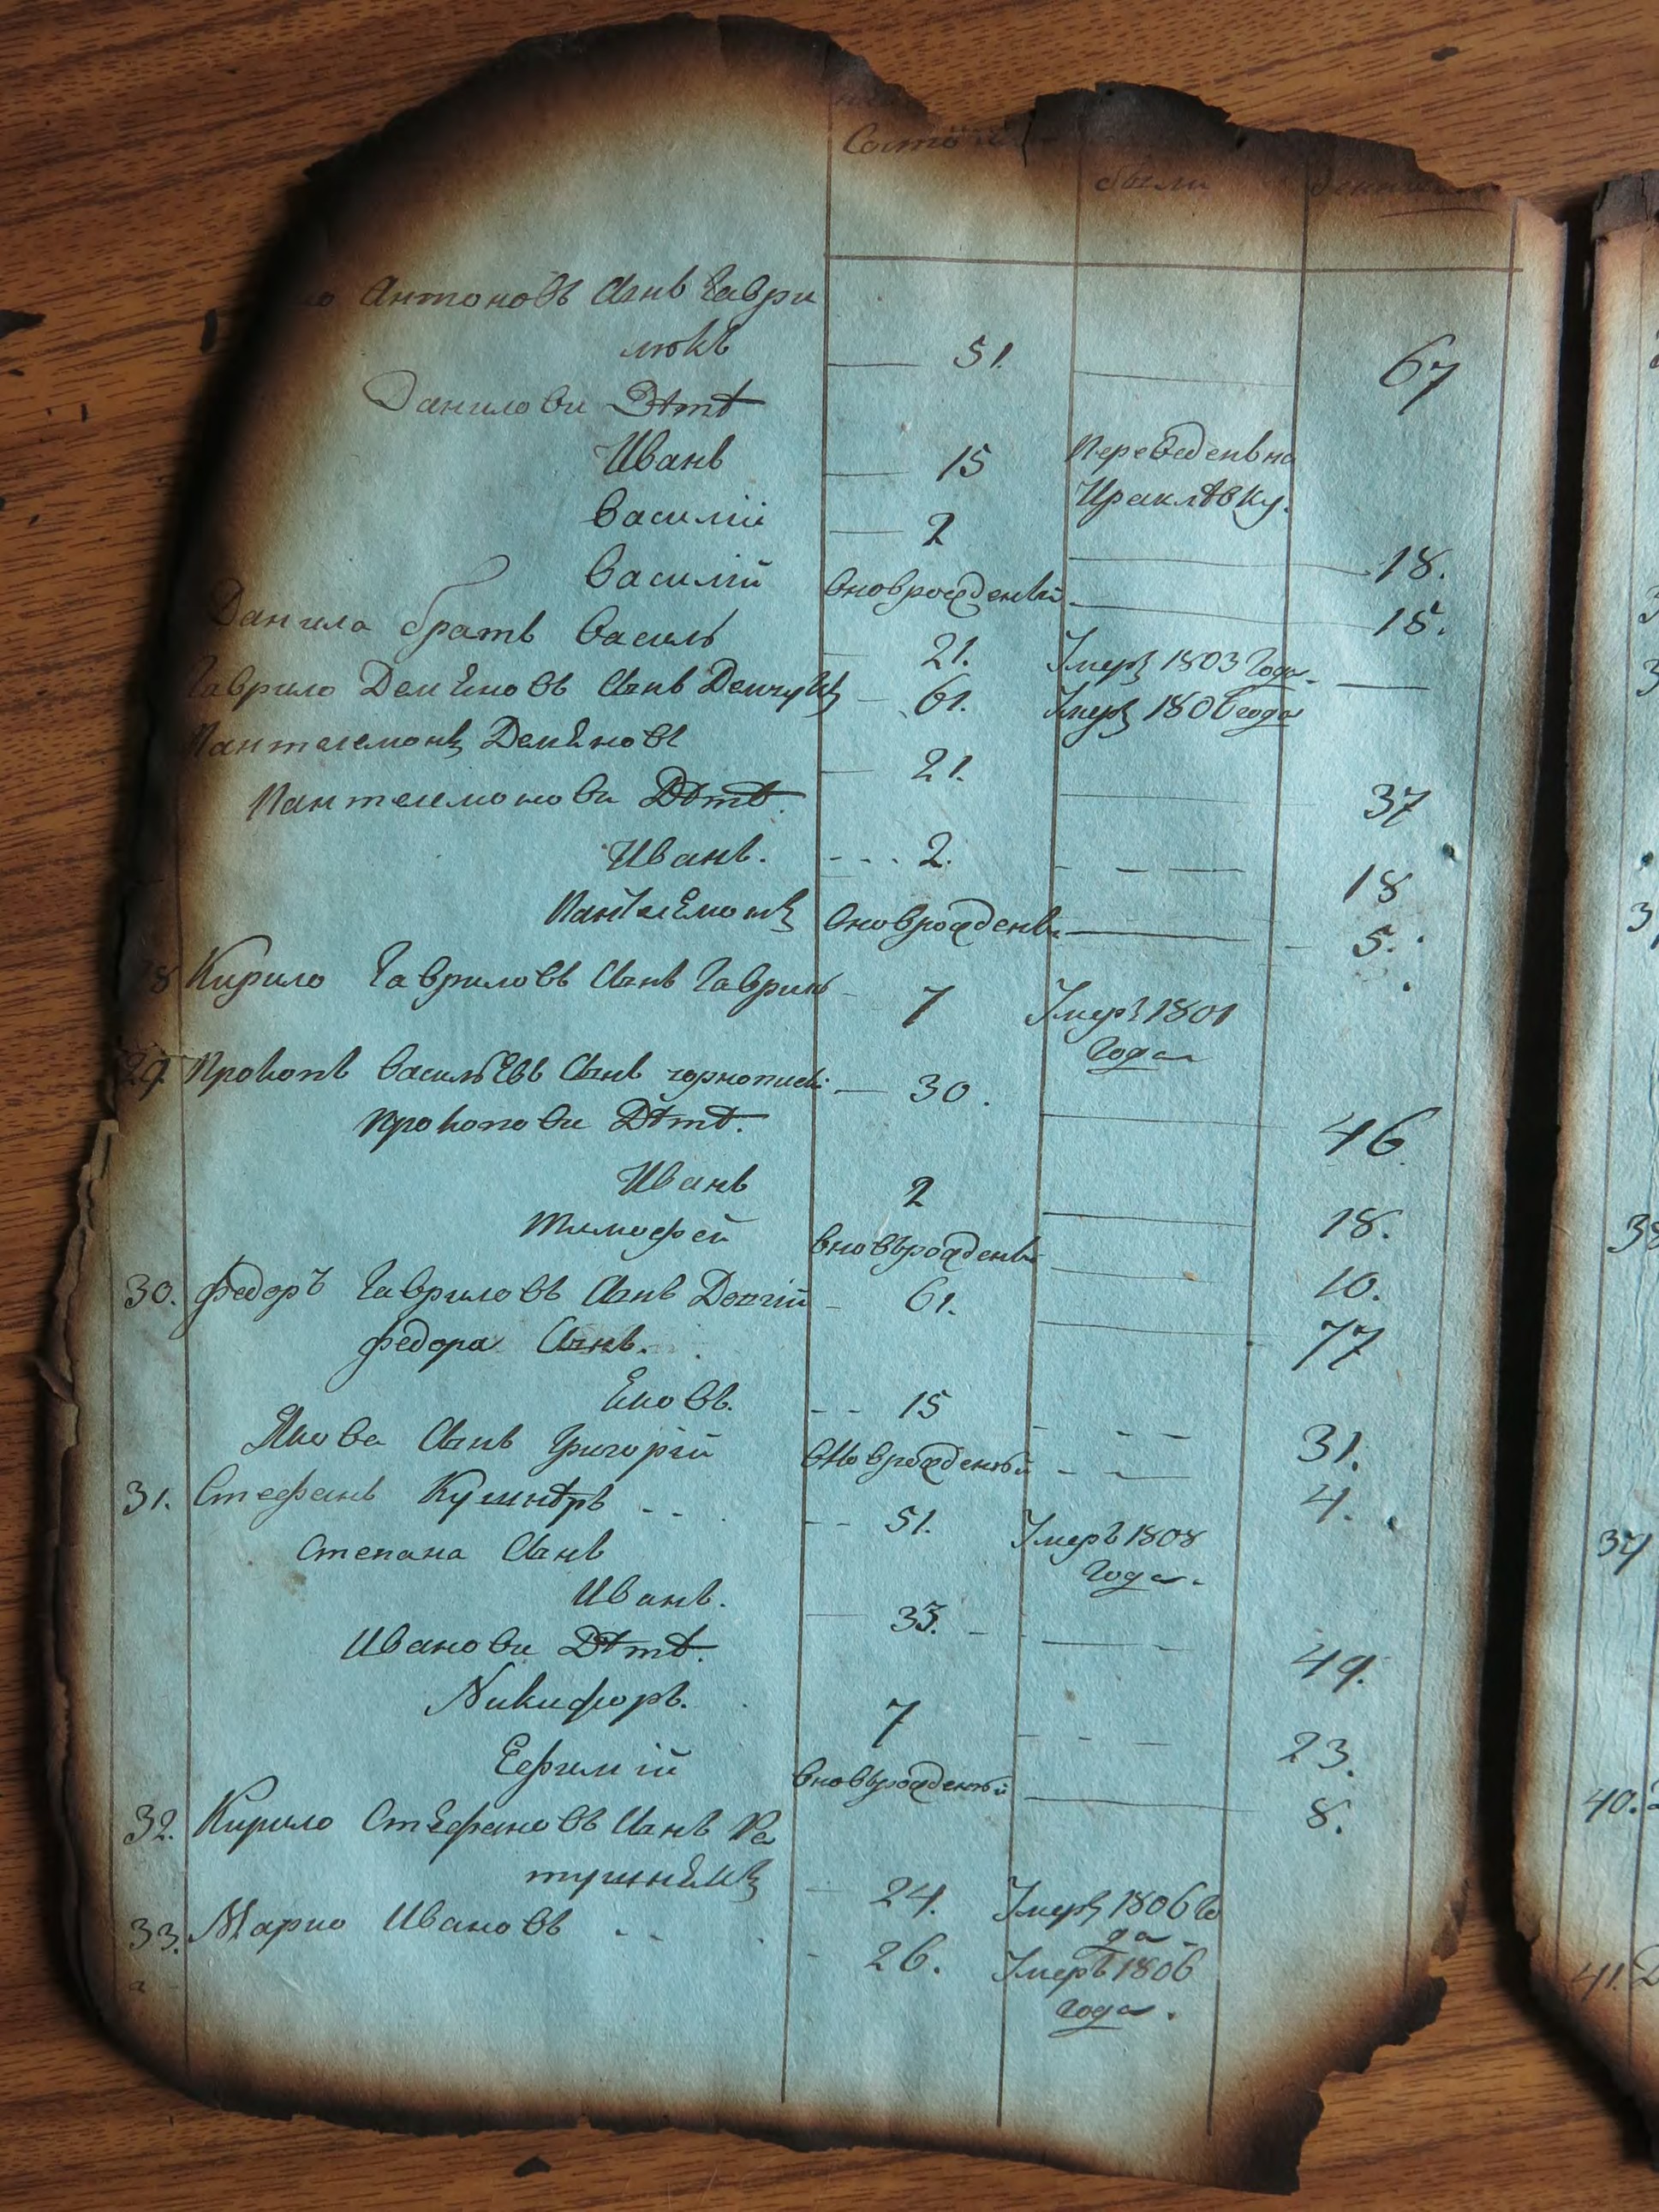 Состо
были
Антоновъ Сынъ Гаври
люкъ — 51. — 67
Даниловы Дѣтѣ
Иванъ — 15 Переведенъ на
Ираклѣвку.
Василій — 2 — 18.
Василій вновьрожденный — 15.
Данила братъ Василь — 21. Умеръ 1803 Года —
Гаврило Деменовъ Сынъ Демчукъ — 61. Умеръ 1806 года
Пантелемонъ Деменовъ — 21. — 37
Пантелемоновы Дѣтѣ.
Иванъ. - - - 2. - — — 18
Пантелемонъ вновьрожденъ — 5.
Кирило Гавриловъ Сынъ Гаврик — 7 Умеръ 1801
Года
29. Прокопъ Васильевъ Сынъ — 30. — 46.
Прокоповы Дѣтѣ.
Иванъ 2 — 18.
Тимофей вновьрожденъ — 10.
30. Федоръ Гавриловъ Сынъ Долгій — 61. — 77
Федора Сынъ.
Яковъ. - - 15 - - - 31.
Якова Сынъ Григорій вновьрожденый - — 4.
31. Стефанъ Кушнѣръ - - - - 51. Умеръ 1808
Года.
Степана Сынъ
Иванъ. — 33. - — - 49.
Ивановы Дѣтѣ.
Никифоръ. 7 - - - 23.
Ефимій вновьрожденый — 8.
32. Кирило Стефановъ Сынъ Ра
тушнекъ — 24. Умеръ 1806 Го
да -
33. Марко Ивановъ - - - 26. Умеръ 1806
года.
38
37
40.
41.